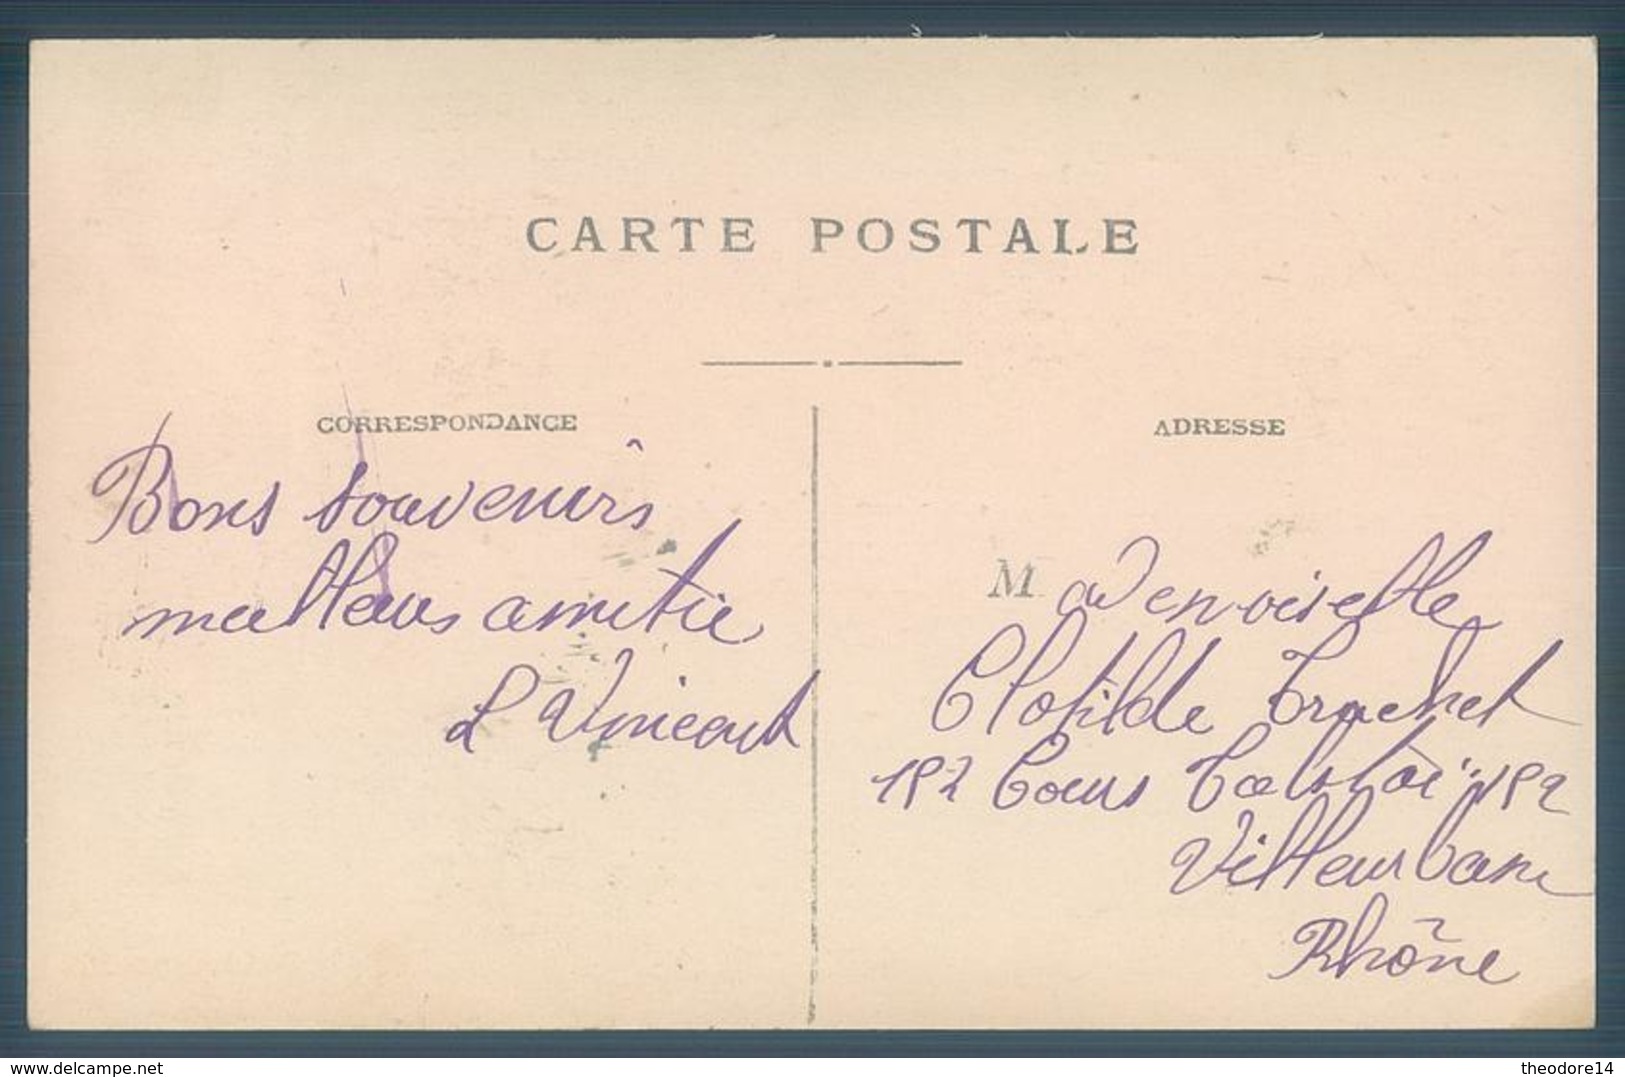 CARTE POSTALE
CORRESPONDANCE
Bons souvenirs
meilleurs amitié
L Vincent
ADRESSE
M ademoiselle
Clotilde Trachet
192 Cours Tolstoï 192
Villeurbane
Rhône
www.delcampe.net
theodore14